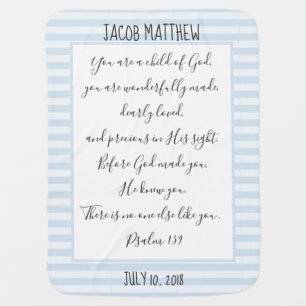 JACOB MATTHEW
You are a child of God,
you are wonderfully made,
dearly loved,
and precious in His sight.
Before God made you,
He knew you.
There is no one else like you.
Psalm 139
JULY 10, 2018